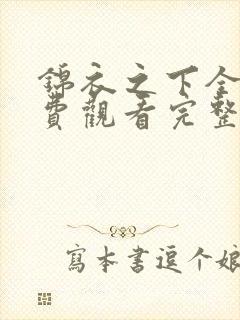 錦衣之下全
費觀看完整
寫本書逗个娘